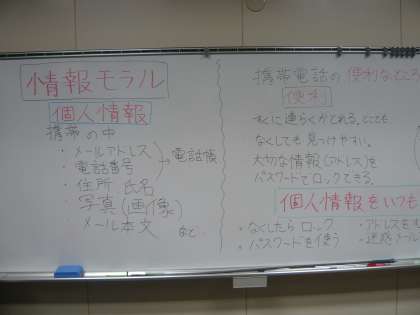 情報モラル
個人情報
携帯の中
・メールアドレス
・電話番号
→電話帳
・住所 氏名
写真(画像)
メール本文
など
携帯電話の便利なところ
便利
すぐに連らくがとれる。どこでも
なくしても見つけやすい。
大切な情報(アドレス)を
パスワードでロックできる。
個人情報をいつも
・なくしたらロック
・パスワードを使う
・アドレスを
・迷惑メール